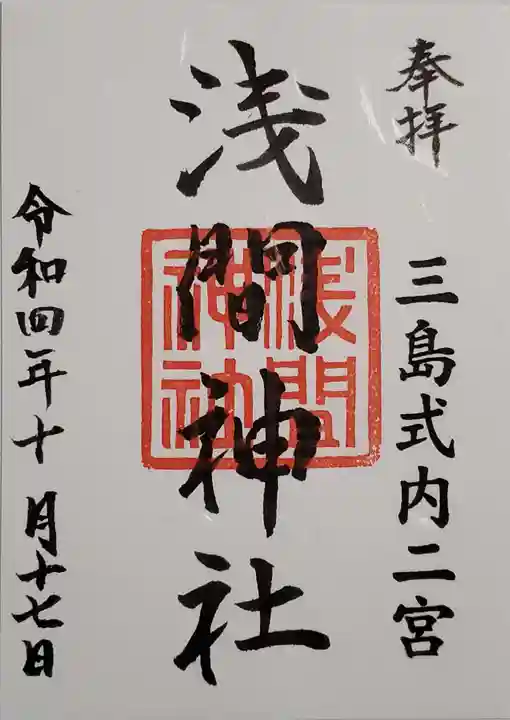 奉拝
三島式内二宮
浅間神社
浅間神社
令和四年十月十七日